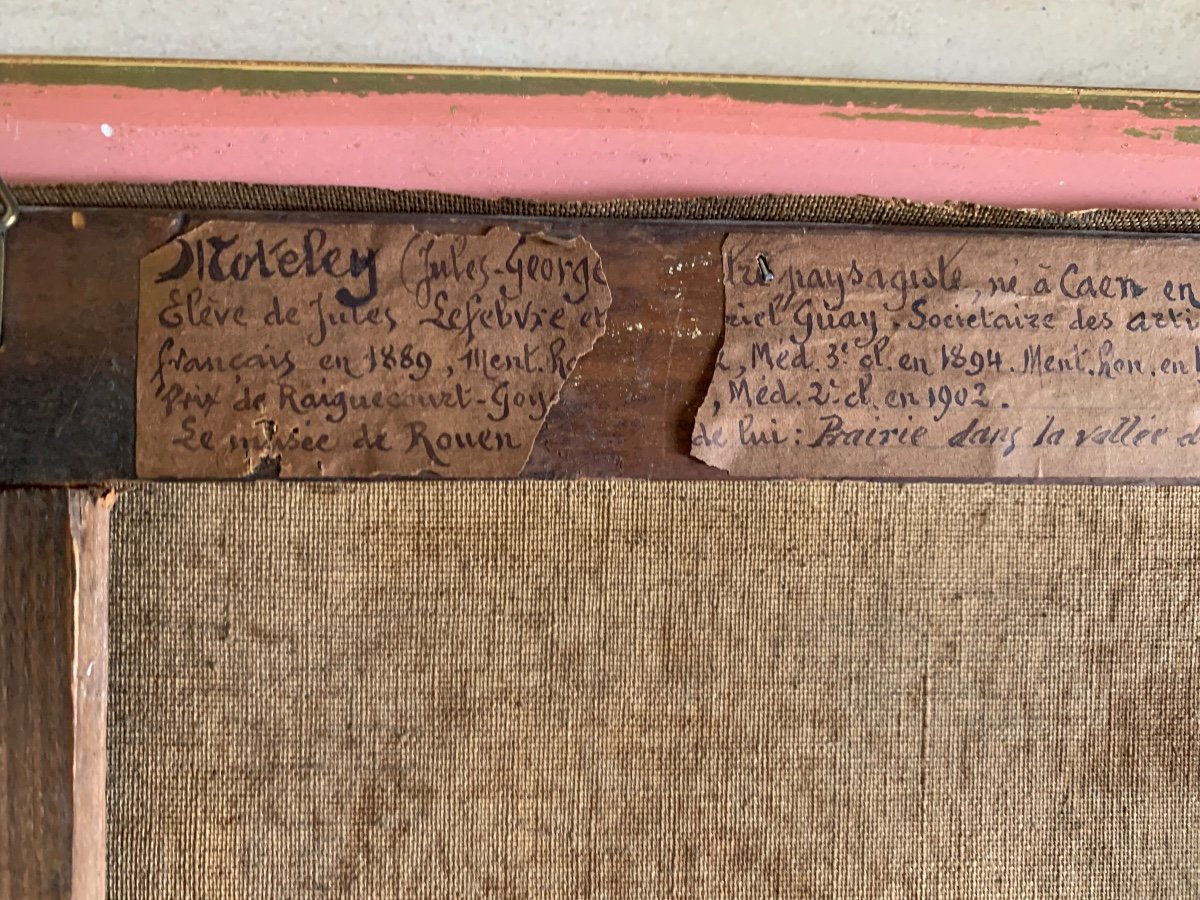 Moteley (Jules-George tre paysagiste, né à Caen en
Elève de Jules Lefebvre et riel Guay. Societaire des arti
français en 1889, Ment. ho , Méd. 3e cl. en 1894. Ment. hon. en 1
Prix de Raiguecourt-Goy , Méd. 2e cl. en 1902.
Le musée de Rouen de lui: Prairie dans la vallée d